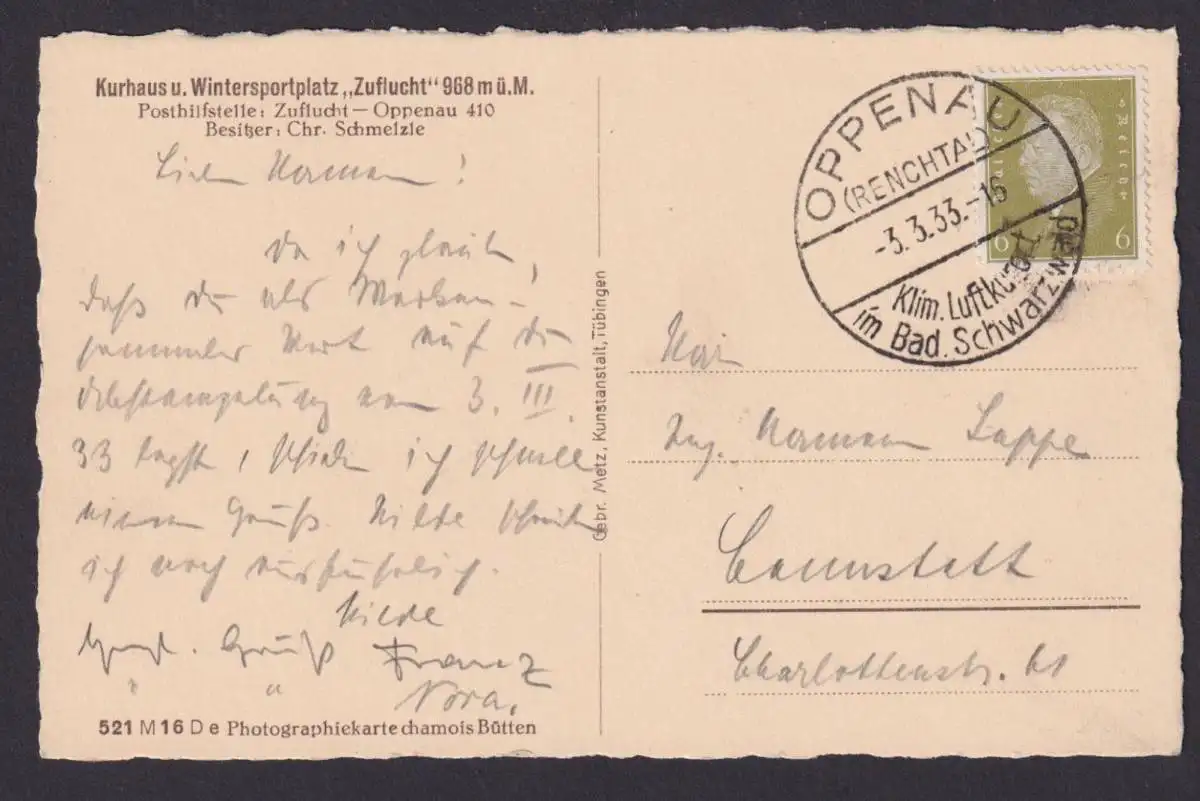 Kurhaus u. Wintersportplatz „Zuflucht" 968 m ü. M.
Posthilfstelle: Zuflucht — Oppenau 410
Besitzer: Chr. Schmelzle
Lieber Hermann!
Da ich glaub,
daß du als Marken-
sammler Wert auf die
Abstempelung vom 3. III.
33 legst, schick ich schnell
einen Gruß. Hilde schreibe
ich noch ausführlich.
Hilde
Gruß Franz
" "
521 M 16 D e Photographiekarte chamois Bütten
Gebr. Metz, Kunstanstalt, Tübingen
OPPENAU
(RENCHTAL)
-3.3.33.-16
Klim. Luftkurort
im Bad. Schwarzwald
Deutsches Reich
6 6
Ing. Hermann Lappe
Cannstatt
Charlottenstr.